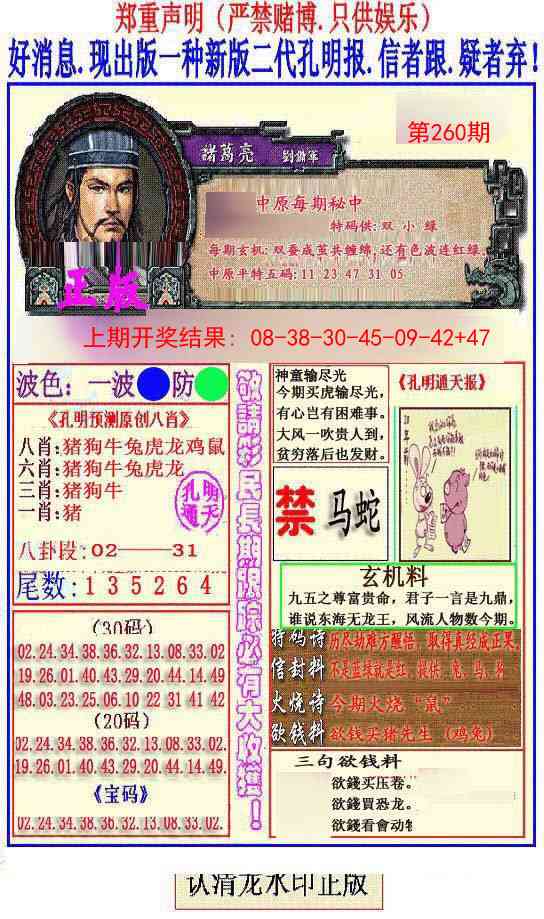 郑重声明（严禁赌博.只供娱乐）
好消息.现出版一种新版二代孔明报.信者跟.疑者弃!
第260期
諸葛亮
中原每期秘中
特码供: 双 小 绿
每期玄机: 双蚕成茧共缠绵,还有色波连红绿.
中原平特五码: 11 23 47 31 05
正版
上期开奖结果: 08-38-30-45-09-42+47
波色: 一波 防
《孔明预测原创八肖》
八肖:猪狗牛兔虎龙鸡鼠
六肖:猪狗牛兔虎龙
三肖:猪狗牛
一肖:猪
孔明
通天
八卦段:02——31
尾数:135264
(30码)
02.24.34.38.36.32.13.08.33.02
19.26.01.40.43.29.20.44.14.49
48.03.23.25.06.10 22 31 41 42
(20码)
02.24.34.38.36.32.13.08.33.02.
19.26.01.40.43.29.20.44.14.49
《宝码》
02.24.34.38.36.32.13.08.33.02.
敬請彩民長期跟踪必有大收獲！
神童输尽光
今期买虎输尽光,
有心岂有困难事。
大风一吹贵人到,
贫穷落后也发财。
《孔明通天报》
禁 马蛇
玄机料
九五之尊富贵命，君子一言是九鼎,
谁说东海无龙王，风流人物数今期。
特码诗 历尽劫难方醒悟，取得真经成正果
信封料 不是蓝绿就是红，提供：兔、马、羊
火烧诗 今期火烧“鼠”
欲钱料 欲钱买猪先生（鸡兔）
三句欲钱料
欲錢买压卷。
欲錢買恐龙。
欲錢看會动
认清龙水印正版